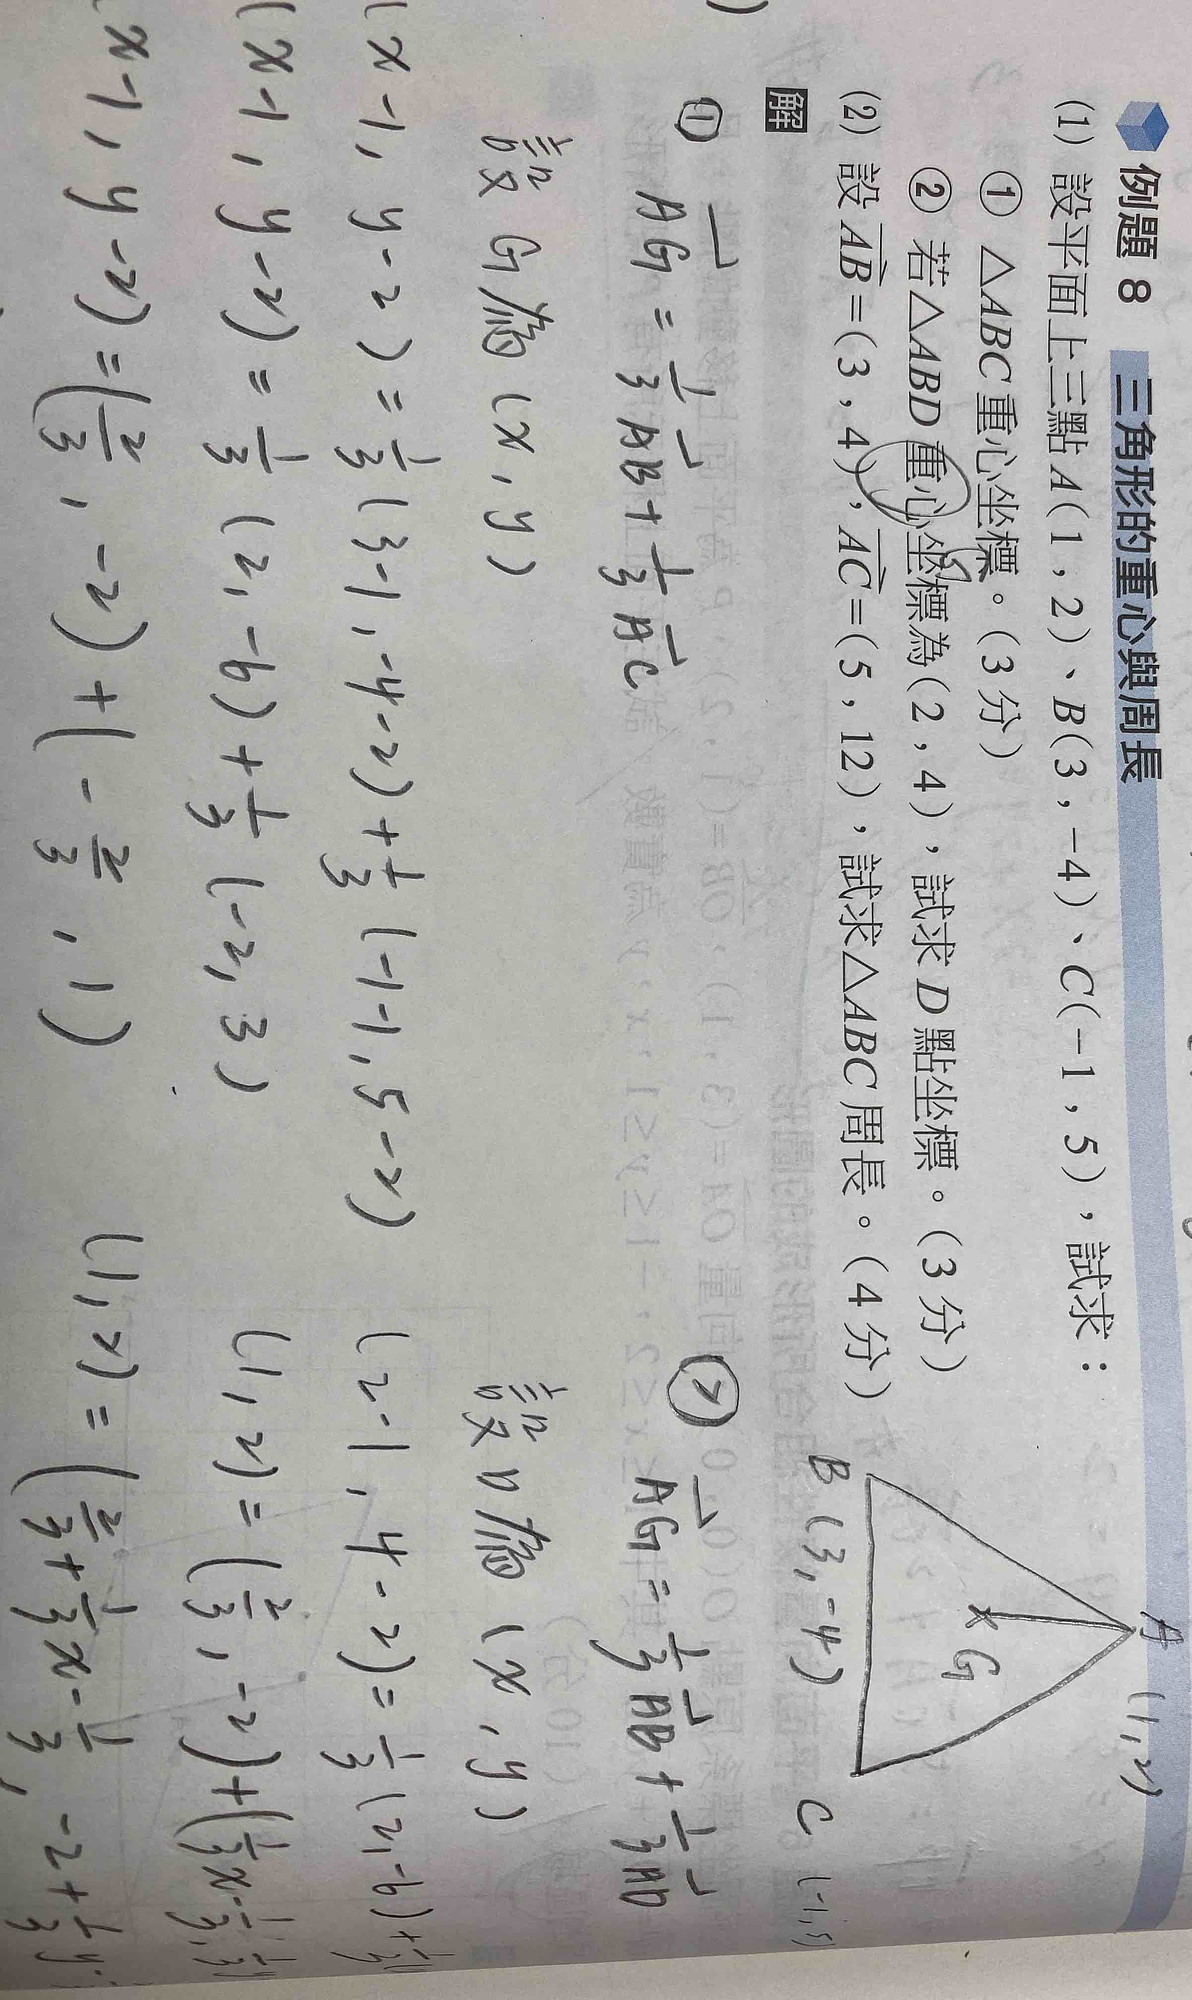 例題 8 三角形的重心與周長
(1) 設平面上三點 A(1,2)、B(3,-4)、C(-1,5),試求:
① △ABC 重心坐標。(3分)
② 若△ABD 重心坐標為(2,4),試求 D 點坐標。(3分)
(2) 設 AB=(3,4),AC=(5,12),試求△ABC 周長。(4分)
解
A (1,2)
G
B (3,-4)
C (-1,5)
① AG = 1/3 AB + 1/3 AC
設 G為 (x,y)
(x-1, y-2) = 1/3 (3-1, -4-2) + 1/3 (-1-1, 5-2)
(x-1, y-2) = 1/3 (2,-6) + 1/3 (-2,3)
(x-1, y-2) = (2/3, -2) + (-2/3, 1)
② AG = 1/3 AB + 1/3 AD
設 D 為 (x,y)
(2-1, 4-2) = 1/3 (2,-6) + 1/3
(1,2) = (2/3, -2) + (1/3x-1/3,
(1,2) = (2/3 + 1/3x - 1/3, -2 + 1/3y